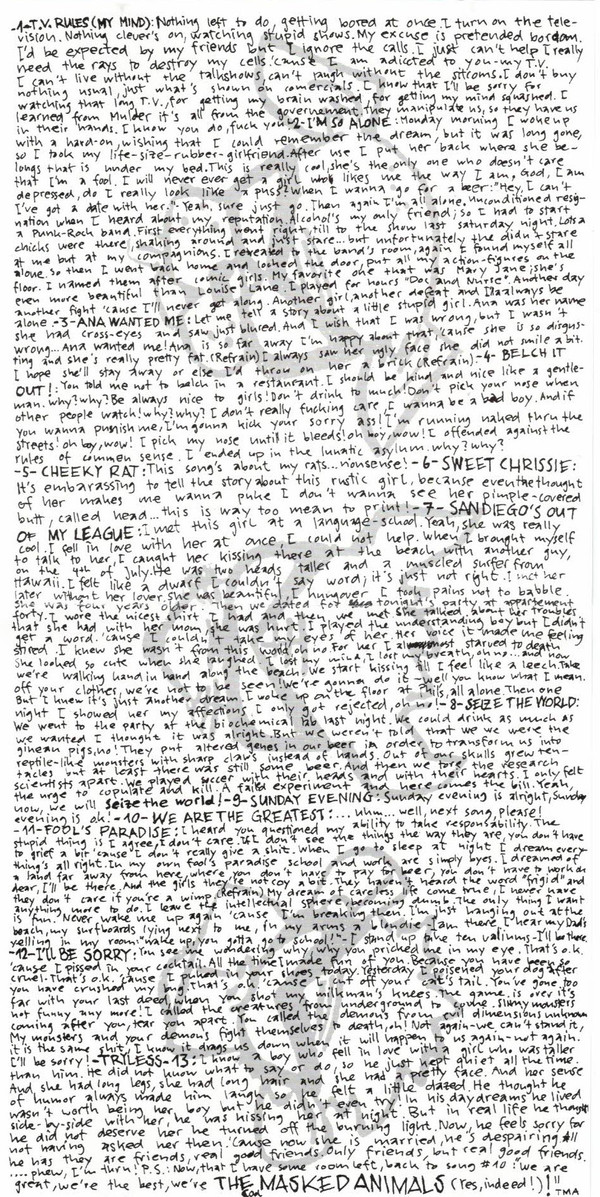 -1-T.V. RULES (MY MIND): Nothing left to do, getting bored at once. I turn on the tele-
vision. Nothing clever's on, watching stupid shows. My excuse is pretended bordom.
I'd be expected by my friends but I ignore the calls. I just can't help I really
need the rays to destroy my cells 'cause I am adicted to you-my T.V.
I can't live without the talkshows, can't laugh without the sitcoms. I don't buy
nothing usual, just what's shown on comercials. I know that I'll be sorry for
watching that long T.V., for getting my brain washed, for getting my mind squashed. I
learned from Mulder it's all from the governement. They manipulate us, so they have us
in their hands. I know you do, fuck you -2-I'M SO ALONE: Monday morning I woke up
with a hard-on, wishing that I could remember the dream, but it was long gone,
so I took my life-size-rubber-girlfriend. After use I put her back where she be-
longs that is under my bed. This is really cool, she's the only one who doesn't care
that I'm a fool. I will never ever get a girl who likes me the way I am. God, I am
depressed, do I really look like a puss? When I wanna go for a beer: "Hey, I can't
I've got a date with her." - Yeah, sure just go. Then again I'm all alone. Unconditioned resig-
nation when I heard about my reputation. Alcohol's my only friend; so I had to start
a Punk-Rock band. First everything went right, till to the show last saturday night. Lots a
chicks were there, shaking around and just stare... but unfortunately they didn't stare
at me but at my compagnions. I revealed the band's room, again I found myself all
alone. So then I went back home and locked the door, put all my action-figures on the
floor. I named them after comic girls. My favorite one that was Mary Jane; she's
even more beautiful than Louise Lane. I played for hours "Doc and Nurse". Another day
another fight 'cause I'll never get along. Another girl, another defeat and I'll always be
alone -3-ANA WANTED ME: Let me tell a story about a little stupid girl. Ana was her name
she had cross-eyes and saw just blured. And I wish that I was wrong, but I wasn't
wrong... Ana wanted me! Ana is so far away I'm happy about that, 'cause she is so disgus-
ting and she's really pretty fat. (Refrain) I always saw her ugly face she did not smile a bit.
I hope she'll stay away or else I'd throw on her a brick (Refrain) -4- BELCH IT
OUT!: You told me not to belch in a restaurant. I should be kind and nice like a gentle-
man. why? why? Be always nice to girls! Don't drink to much! Don't pick your nose when
other people watch! why? why? I don't really fucking care I wanna be a bad boy. And if
you wanna punish me, I'm gonna kick your sorry ass! I'm running naked thru the
streets! oh boy, wow! I pick my nose until it bleeds! oh boy, wow! I offended against the
rules of commen sense. I ended up in the lunatic asylum. why? why?
-5- CHEEKY RAT: This song's about my rats... nonsense! -6- SWEET CHRISSIE:
It's embarassing to tell the story about this rustic girl, because even the thought
of her makes me wanna puke I don't wanna see her pimple-covered
butt, called head... this is way too mean to print! -7- SANDIEGO'S OUT
OF MY LEAGUE: I met this girl at a language-school. Yeah, she was really
cool. I fell in love with her at once, I could not help. When I brought myself
to talk to her, I caught her kissing there at the beach with another guy,
on the 4th of july. He was two heads taller and a muscled surfer from
Hawaii. I felt like a dwarf I couldn't say word; it's just not right. I met her
later without her lover. She was beautiful, I hungover. I took pains not to babble.
She was four years older. Then we dated for tonight's party at appartement
forty. I wore the nicest shirt I had and then we met. She talked about her troubles
that she had with her mom, she was hurt. I played the understanding boy but I didn't
get a word. 'cause I couldn't take my eyes of her. Her voice it made me feeling
stired. I knew she wasn't from this world, oh no. For her I almost starved to death
She looked so cute when she laughed. I lost my mind, I lost my breath, oh no... and now
we're walking hand in hand along the beach, we start kissing all I feel like a leech. Take
off your clothes, we're not to be seen. We're gonna do it - well you know what I mean.
But I knew it's just another dream. I woke up on the floor at Phils, all alone. Then one
night I showed her my affections, I only got rejected, oh no! -8-SEIZE THE WORLD:
We went to the party at the biochemical lab last night. We could drink as much as
we wanted I thought it was alright. But we weren't told that we were the
ginean pigs, no! They put altered genes in our beer in order to transform us into
reptile-like monsters with sharp claws instead of hands. Out of our skulls grew ten-
tacles but at least there was still some beer. And then we tore the research
scientists apart. We played soccer with their heads and with their hearts. I only felt
the urge to copulate and kill. A failed experiment and here comes the bill. Yeah,
now, we will seize the world! -9- SUNDAY EVENING: Sunday evening is alright, Sunday
evening is ok! -10- WE ARE THE GREATEST:... uhm... well, next song, please!
-11-FOOL'S PARADISE: I heard you questioned my ability to take responsability. The
stupid thing is I agree, I don't care. If I don't see the things the way they are, you don't have
to grief a bit 'cause I don't really give a shit. When I go to sleep at night I dream every-
thing's all right. In my own fool's paradise school and work are simply byes. I dreamed of
a land far away from here, where you don't have to pay for beer, you don't have to work oh
dear, I'll be there. And the girls they're not coy a bit. They haven't heard the word "frigid" and
they don't care if you're a wimp. (Refrain) My dream of careless life come true, I never have
anything more to do. I leave the intellectual sphere, becoming dumb. The only thing I want
is fun. Never wake me up again 'cause I'm breaking then. I'm just hanging out at the
beach, my surfboards lying next to me, in my arms a blondie I am there. I hear my Dad's
yelling in my room: "wake up, you gotta go to school!" - I stand up take ten valiums - I'll be there.
-12-I'LL BE SORRY: You see me wondering why, oh you punched me in my eye. That's o.k.
'cause I pissed in your cocktail. All the time I made fun of you. Because you have been so
cruel. That's o.k. 'cause I puked in your shoes today. Yesterday I poisened your dog after
you have crushed my pug. that's o.k. 'cause I cut off your cat's tail. You've gone too
far with your last deed, when you shot my milkman's knees. The game is over it's
not funny any more! I called the creatures from underground to come. Slimy monsters
coming after you, tear you apart. You called the demons from evil dimensions unknown
My monsters and your demons fight themselves to death, oh! Not again - we can't stand it,
it is the same shit, I know it drags us down when it will happen to us again - not again.
I'll be sorry! -TRILESS- 13: I know a boy who fell in love with a girl who was taller
than him. He did not know what to say or do, so he just kept quiet all the time.
And she had long legs, she had long hair and she had a pretty face. And her sense
of humor always made him laugh, he felt a little dazed. He thought he
wasn't worth being her boy but he didn't even try. In his daydreams he lived
side-by-side with her, he was kissing her at night. But in real life he thought
he did not deserve her he turned off the burning light. Now, he feels sorry for
not having asked her then. 'cause now she is married, he's despairing all
he has they are friends, real good friends. Only friends, but real good friends.
....phew, I'm thru! P.S.: Now, that I have some room left, back to song #10: We are
great, we're the best, we're THE MASKED ANIMALS (Yes, indeed!)!!"
TMA